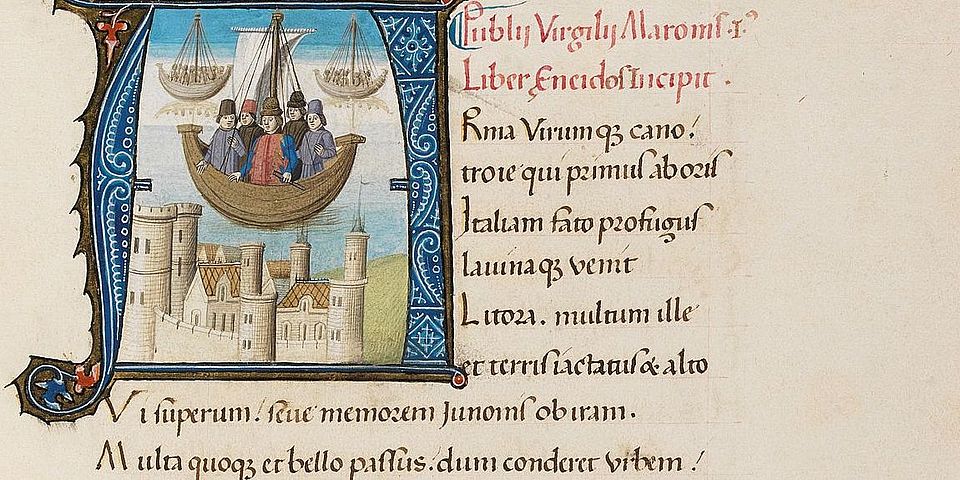 Publii Virgilij Maronis ·I·
Liber Eneidos Incipit .
Rma Virumqꝫ cano !
troie qui primus ab oris
Italiam fato profugus
lauinaqꝫ venit
Litora . multum ille
et terris iactatus & alto
Vi superum ! seue memorem Junonis ob iram .
Multa quoqꝫ et bello passus . dum conderet vrbem !